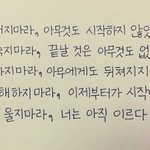 지마라, 아무것도 시작하지 않았
지마라, 끝날 것은 아무것도 없
하지마라, 아무에게도 뒤쳐지지
해하지마라, 이제부터가 시작
울지마라, 너는 아직 이르다